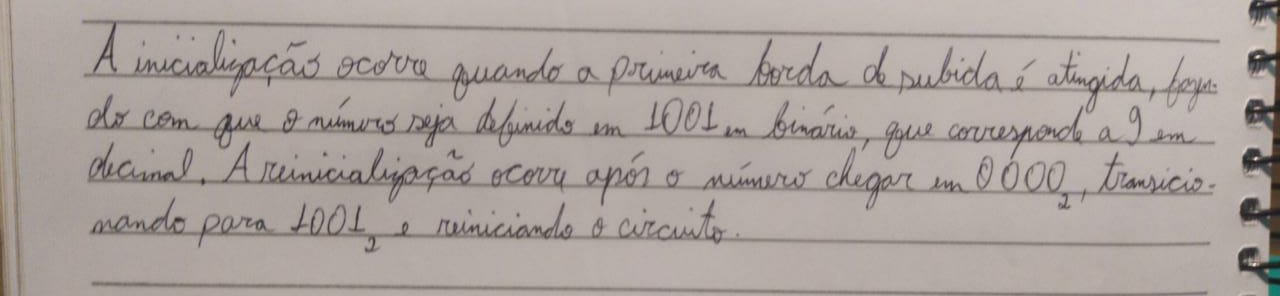 A inicialização ocorre quando a primeira borda de subida é atingida, fazen-
do com que o número seja definido em 1001 em binário, que corresponde a 9 em
decimal. A reinicialização ocorre após o número chegar em 0000₂, transicio-
nando para 1001₂ e reiniciando o circuito.